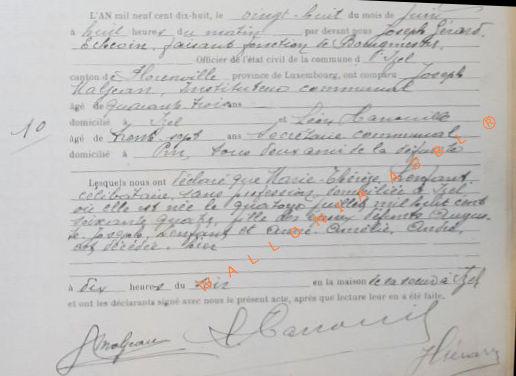 L'AN mil neuf cent dix-huit, le vingt-huit du mois de Juin
à huit heures du matin par devant nous Joseph Gérard,
Echevin, faisant fonction de Bourgmestre,
Officier de l'état civil de la commune d'Izel
canton de Florenville province de Luxembourg, ont comparu Joseph
Maljean, Instituteur communal
âgé de quarante-trois ans
domicilié à Izel et Léon
10
âgé de trente-sept ans Secrétaire communal
domicilié à Pin, tous deux amis de la défunte
Lesquels nous ont déclaré que Marie-Thérèse
célibataire, sans profession, domiciliée à Izel
où elle est née le quatorze juillet mil huit cent
soixante quatre, fille des époux défunts Augus-
te Joseph, et André Amélie,
est décédée hier
à dix heures du soir en la maison de sa soeur à Izel
et ont les déclarants signé avec nous le présent acte, après que lecture leur en a été faite.
J Maljean
WALLONIE ASBL ®